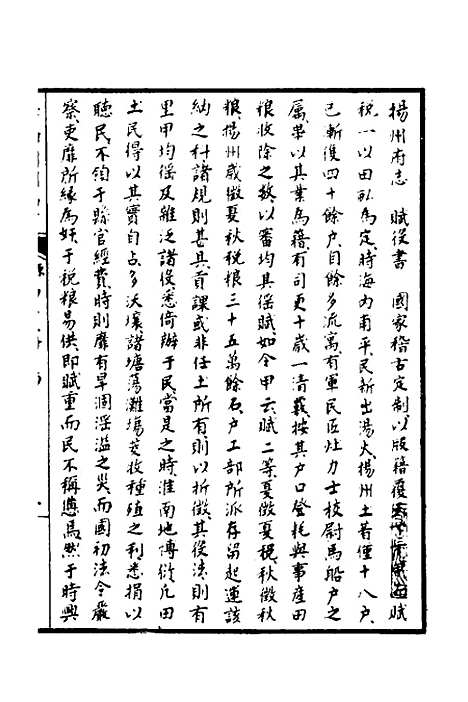 揚州府志　賦役書　國家稽古定制以版籍覆賦
稅一以田畝為定時海內甫平民新出湯火揚州土著僅十八户
已漸復四十餘户自餘多流寓有軍民匠灶力士校尉馬船户之
屬率以其業為籍有司更十歲一清覈按其户口登耗與事產田
糧收除之数以審均其徭賦如令甲云賦二等夏徵夏稅秋徵秋
糧揚州歲徵夏秋稅糧三十五萬餘石户工部所派存留起運該
納之科諸規則甚具貢課或非任土所有則以折徵其役法則有
里甲均徭及雜泛諸役悉倚辦于民當是之時淮南地博衍凡田
土民得以其實自占多沃壤諸塘蕩灘場茭牧種殖之利悉捐以
聽民不領于縣官經費時則靡有旱涸滛溢之災而國初法令嚴
察吏靡所緣為奸于稅糧易供即賦重而民不稱憊焉然于時興